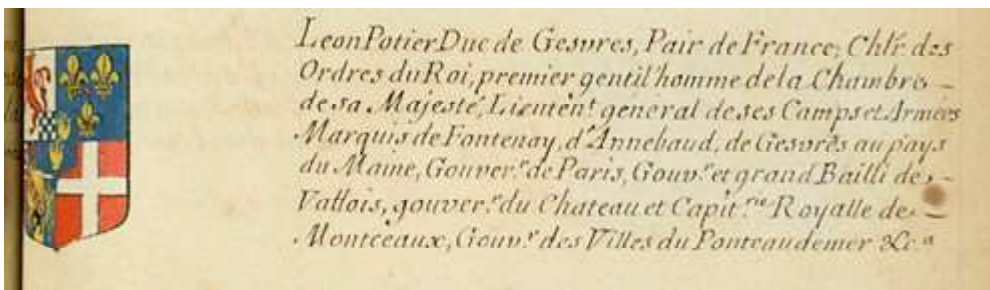 Leon Potier Duc de Gesvres, Pair de France, Chlr. des
Ordres du Roi, premier gentil'homme de la Chambre
de sa Majesté, Lieutent. general de ses Camps et Armées
Marquis de Fontenay, d'Annebaud, de Gesvres au pays
du Maine, Gouver.r de Paris, Gouv.r et grand Bailli de
Vallois, gouver.r du Chateau et Capit.ne Royalle de
Montceaux, Gouv.r des Villes du Ponteaudemer &c.a